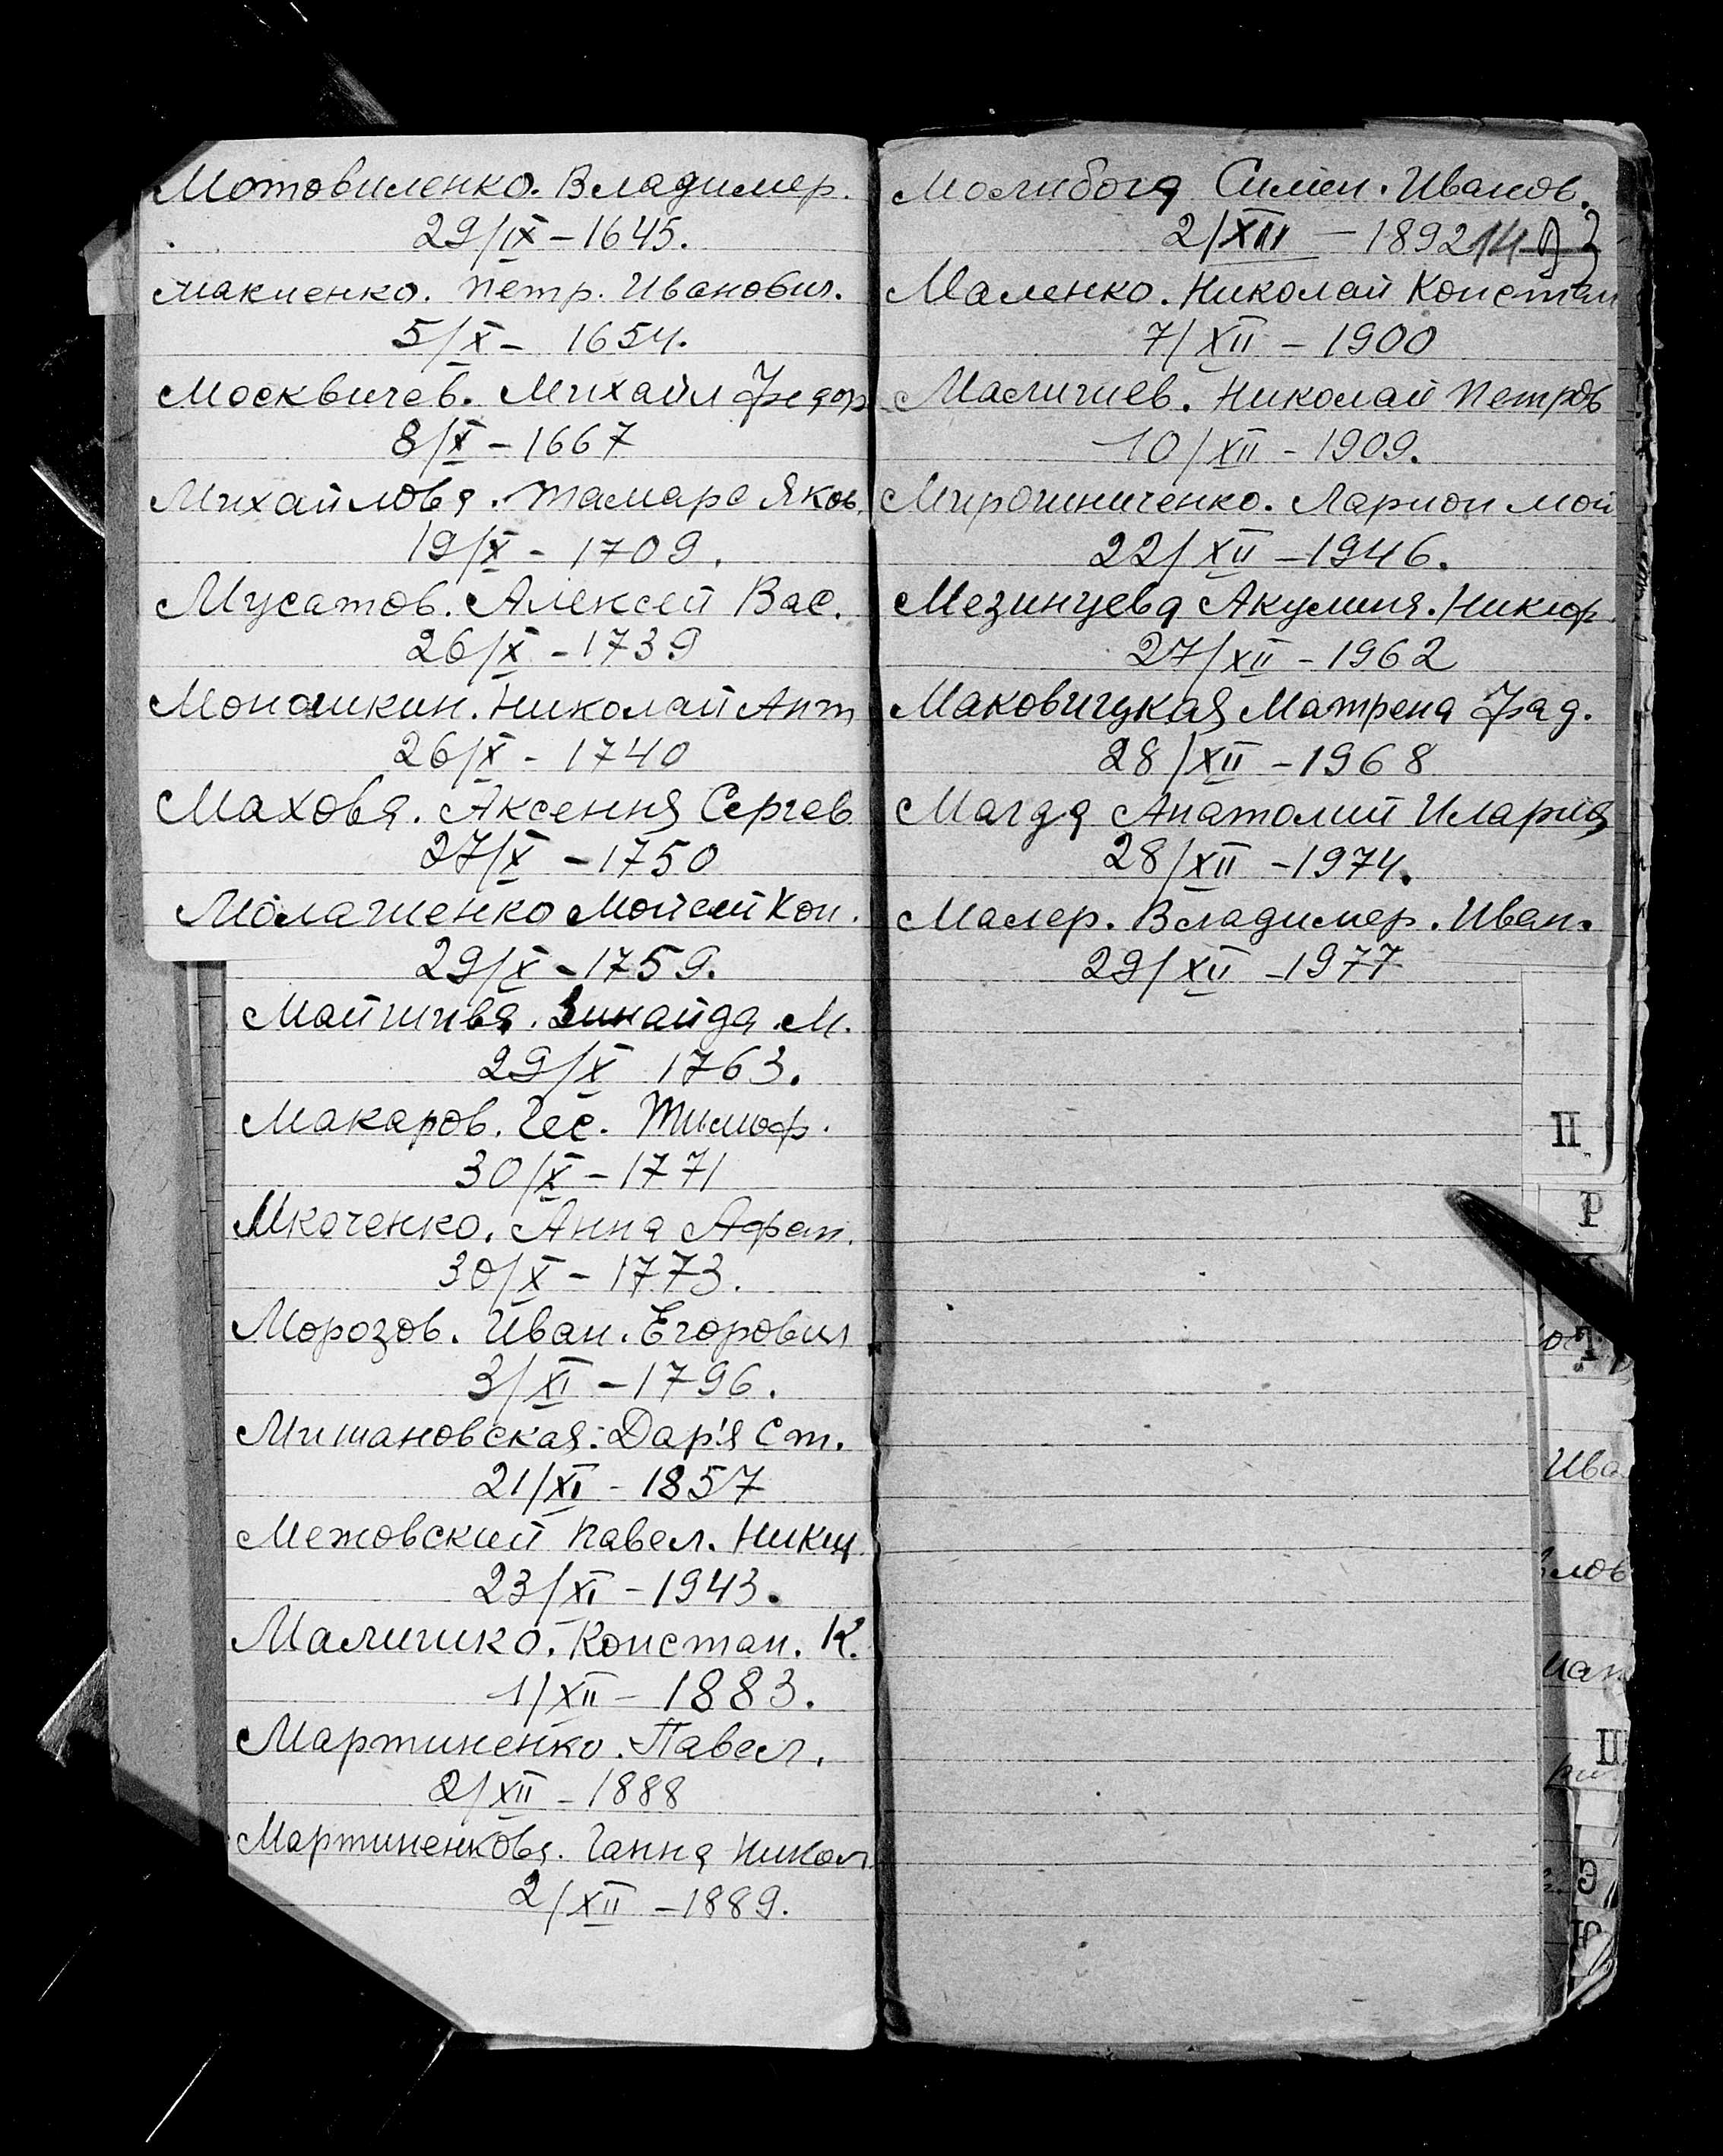 Мотовиленко. Владимер.
29/IX - 1645.
Макиенко. Петр. Иванович.
5/X - 1654.
Москвичев. Михайл Федор
8/X - 1667
Михайлова. Тамара Яков.
19/X - 1709.
Мусатов. Алексей Вас.
26/X - 1739
Монашкин. Николай Ант
26/X - 1740
Махова. Аксения Сергев
27/X - 1750
Молашенко Мойсей Кон.
29/X - 1759.
Зинайда М.
29/X 1763.
Макаров. Гес. Тимоф.
30/X - 1771
Мкоченко. Анна Афан.
30/X - 1773.
Морозов. Иван. Егорович
3/XI - 1796.
Мишановская. Дар'я Ст.
21/XI - 1857
Межовский Павел. Никит
23/XI - 1943.
Малишко. Констан. К.
1/XII - 1883.
Мартиненко. Павел.
2/XII - 1888
Мартиненкова. Ганна Никол
2/XII - 1889.
Молибога Симен. Иванов.
2/XII - 1892
Маленко. Николай Констан
7/XII - 1900
Маличиев. Николай Петров
10/XII - 1909.
Мирошниченко. Ларион Мой
22/XII - 1946.
Мезинцева Акулина. Никиф.
27/XII - 1962
Маковицкая Матрена Фад.
28/XII - 1968
Магда Анатолий Илария
28/XII - 1974.
Малер. Владимер. Иван.
29/XII - 1977
П
Р
Т
Ива
лов
Ш
Э
Ю